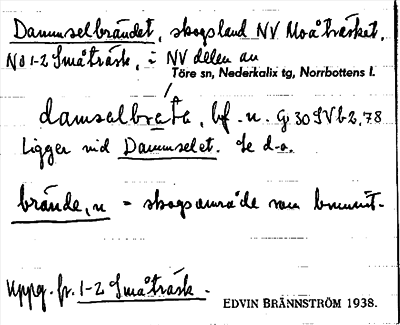 Dammselbrändet, skogsland NV Moåträsket,
No 1-2 Småträsk, i NV delen av
Töre sn, Nederkalix tg, Norrbottens l.
damselbreta, bf. n. G 30 IV b 2, 78
Ligger vid Dammselet. Se d.o.
brände, n = skogsområde som brunnit.
Uppg. fr. 1-2 Småträsk.
EDVIN BRÄNNSTRÖM 1938.